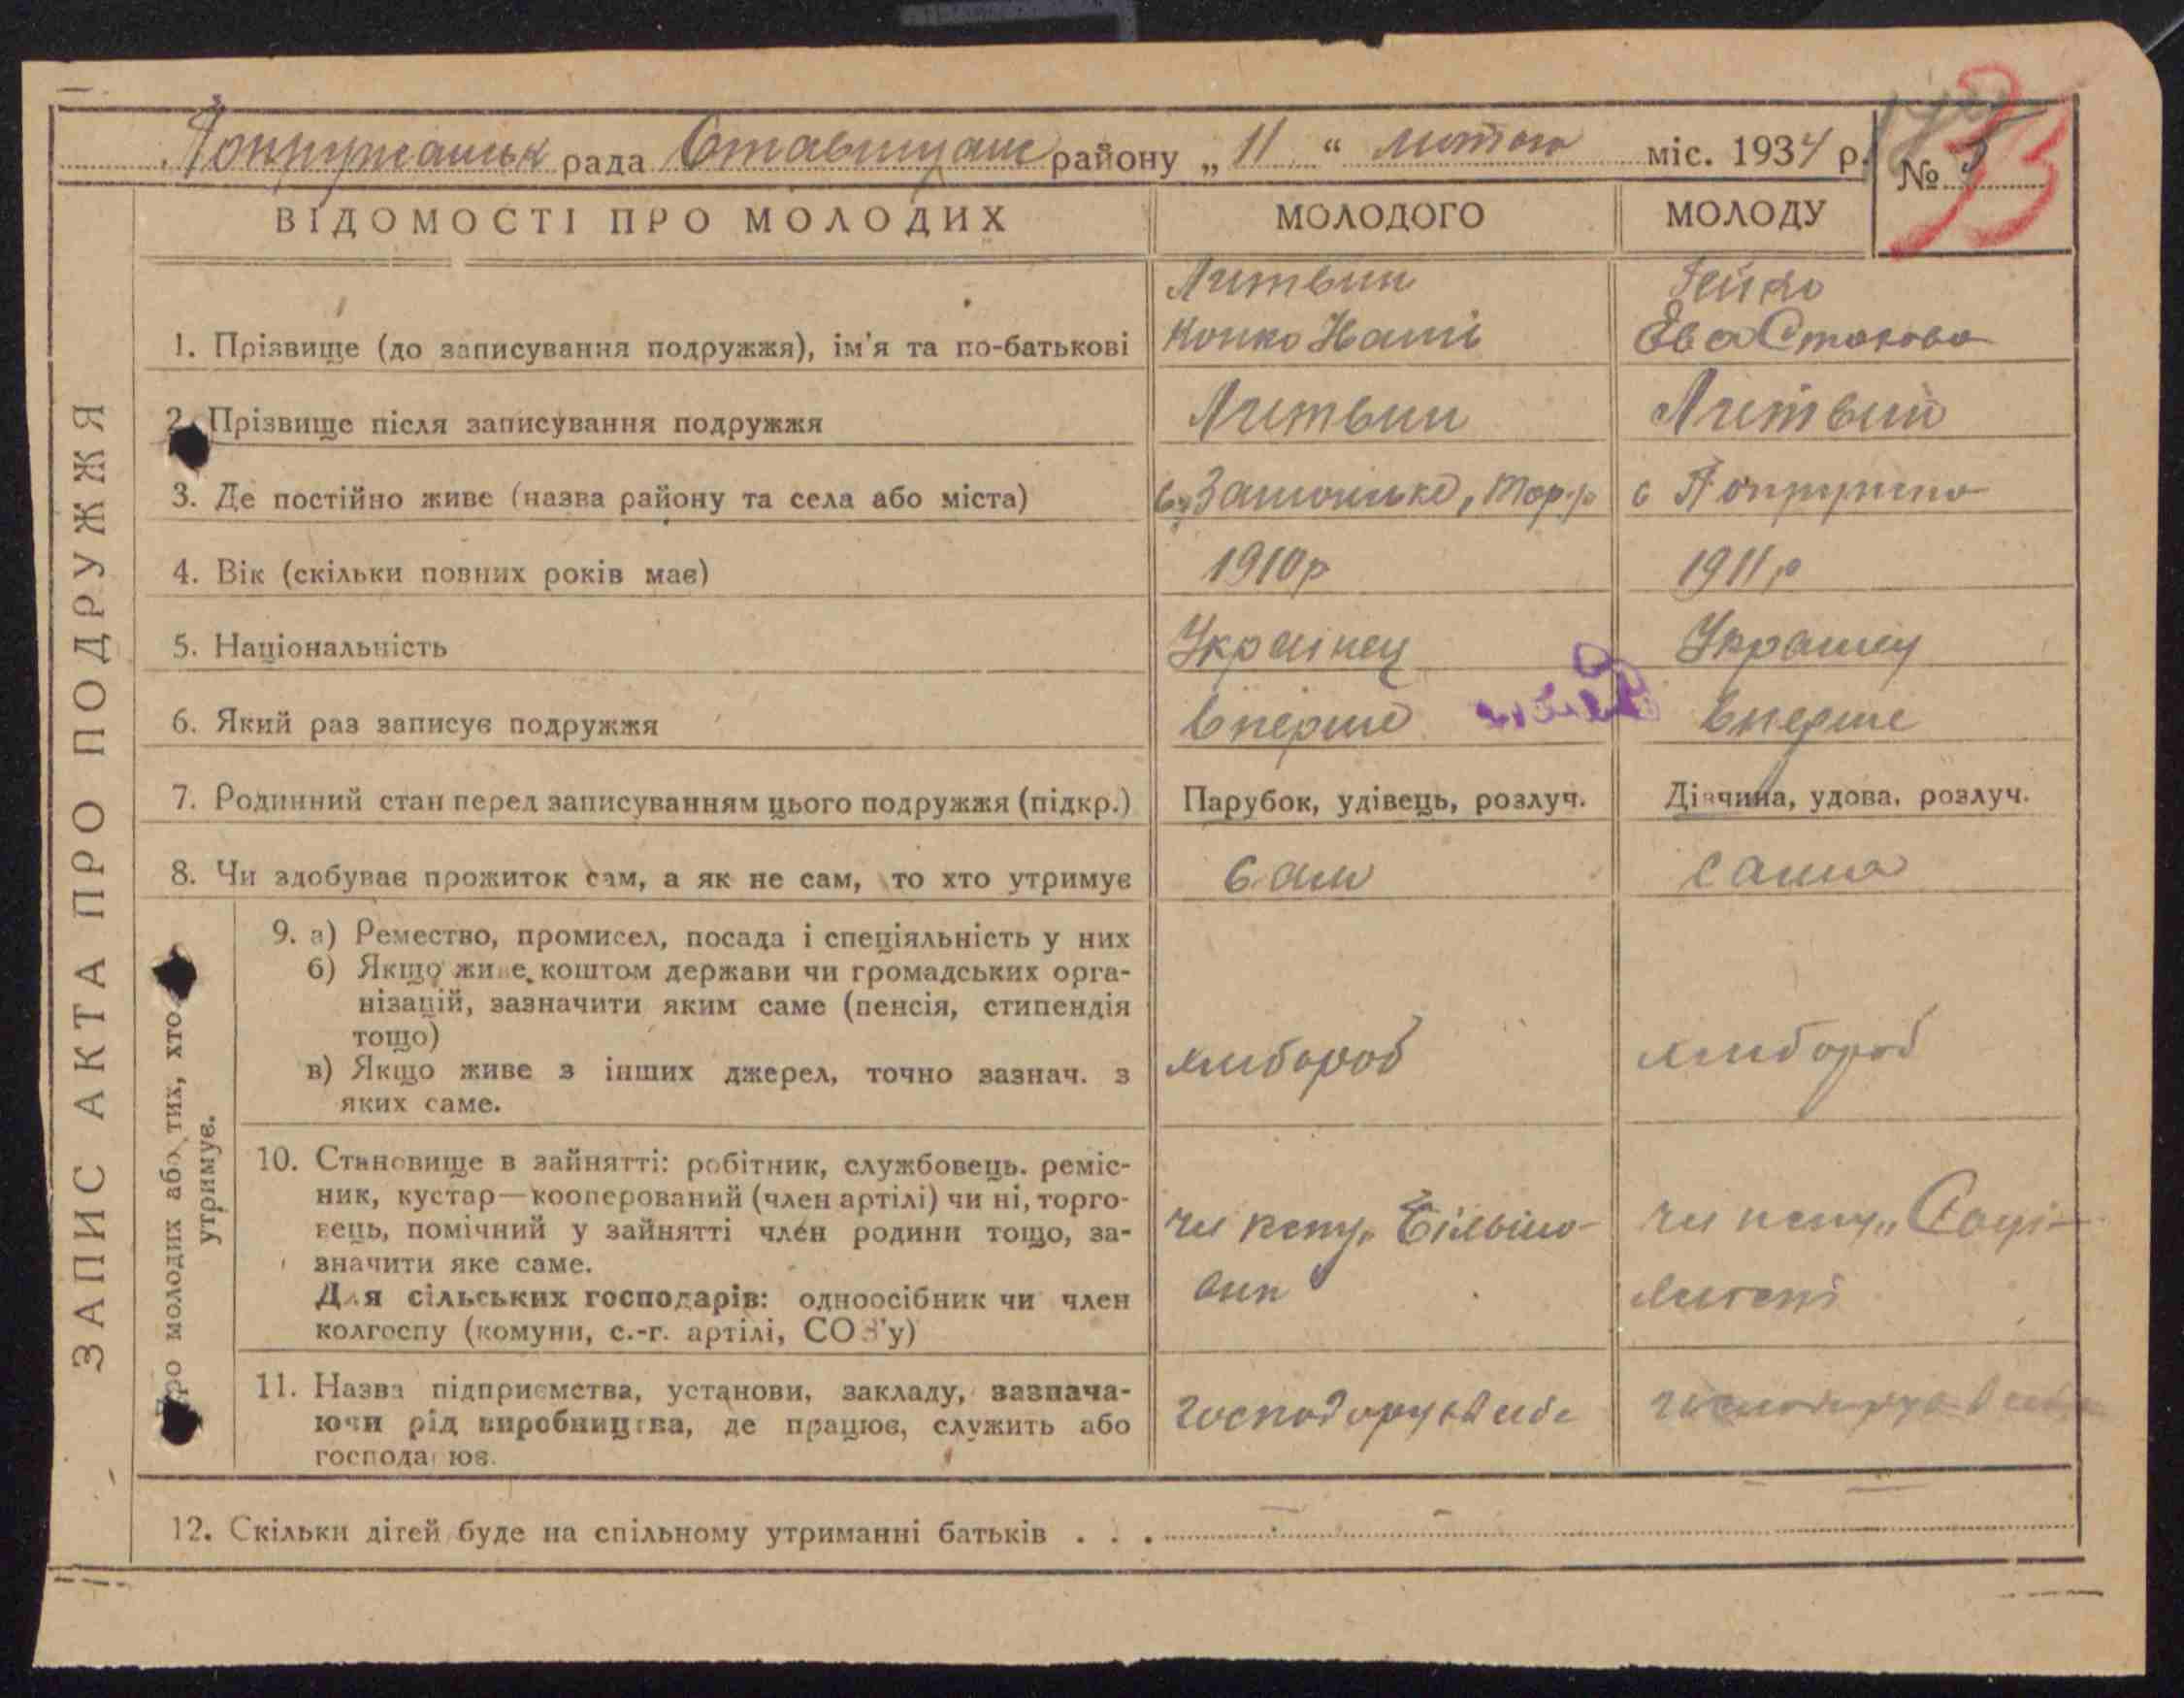 рада район у „ 11 “ лютого міс. 1934 р.
№
ВІДОМОСТІ ПРО МОЛОДИХ МОЛОДОГО МОЛОДУ
Литвин Гейко
1. Прізвище (до записування подружжя), ім'я та по-батькові Ева
2. Прізвище після записування подружжя Литвин Литвин
3. Де постійно живе (назва району та села або міста) с
4. Вік (скільки повних років має) 1910р 1911р
5. Національність Українец Украінец
6. Який раз записує подружжя вперше вперше
7. Родинний стан перед записуванням цього подружжя (підкр.) Парубок, удівець, розлуч. Дівчина, удова, розлуч.
8. Чи здобуває прожиток сам, а як не сам, то хто утримує сам сама
9. а) Ремество, промисел, посада і спеціяльність у них
б) Якщо живе коштом держави чи громадських орга-
нізацій, зазначити яким саме (пенсія, стипендія
тощо)
в) Якщо живе з інших джерел, точно зазнач. з хлибороб хлибороб
яких саме.
10. Становище в зайнятті: робітник, службовець. реміс-
ник, кустар—кооперований (член артілі) чи ні, торго-
вець, помічний у зайнятті член родини тощо, за- чл Більшо- чл Соці-
значити яке саме.
Для сільських господарів: одноосібник чи член вик
колгоспу (комуни, с.-г. артілі, СОЗ'у)
11. Назва підприємства, установи, закладу, зазнача-
ючи рід виробництва, де працює, служить або
господарює.
12. Скільки дітей буде на спільному утриманні батьків . . .
Про молодих або тих, хто
утримує.
ЗАПИС АКТА ПРО ПОДРУЖЖЯ